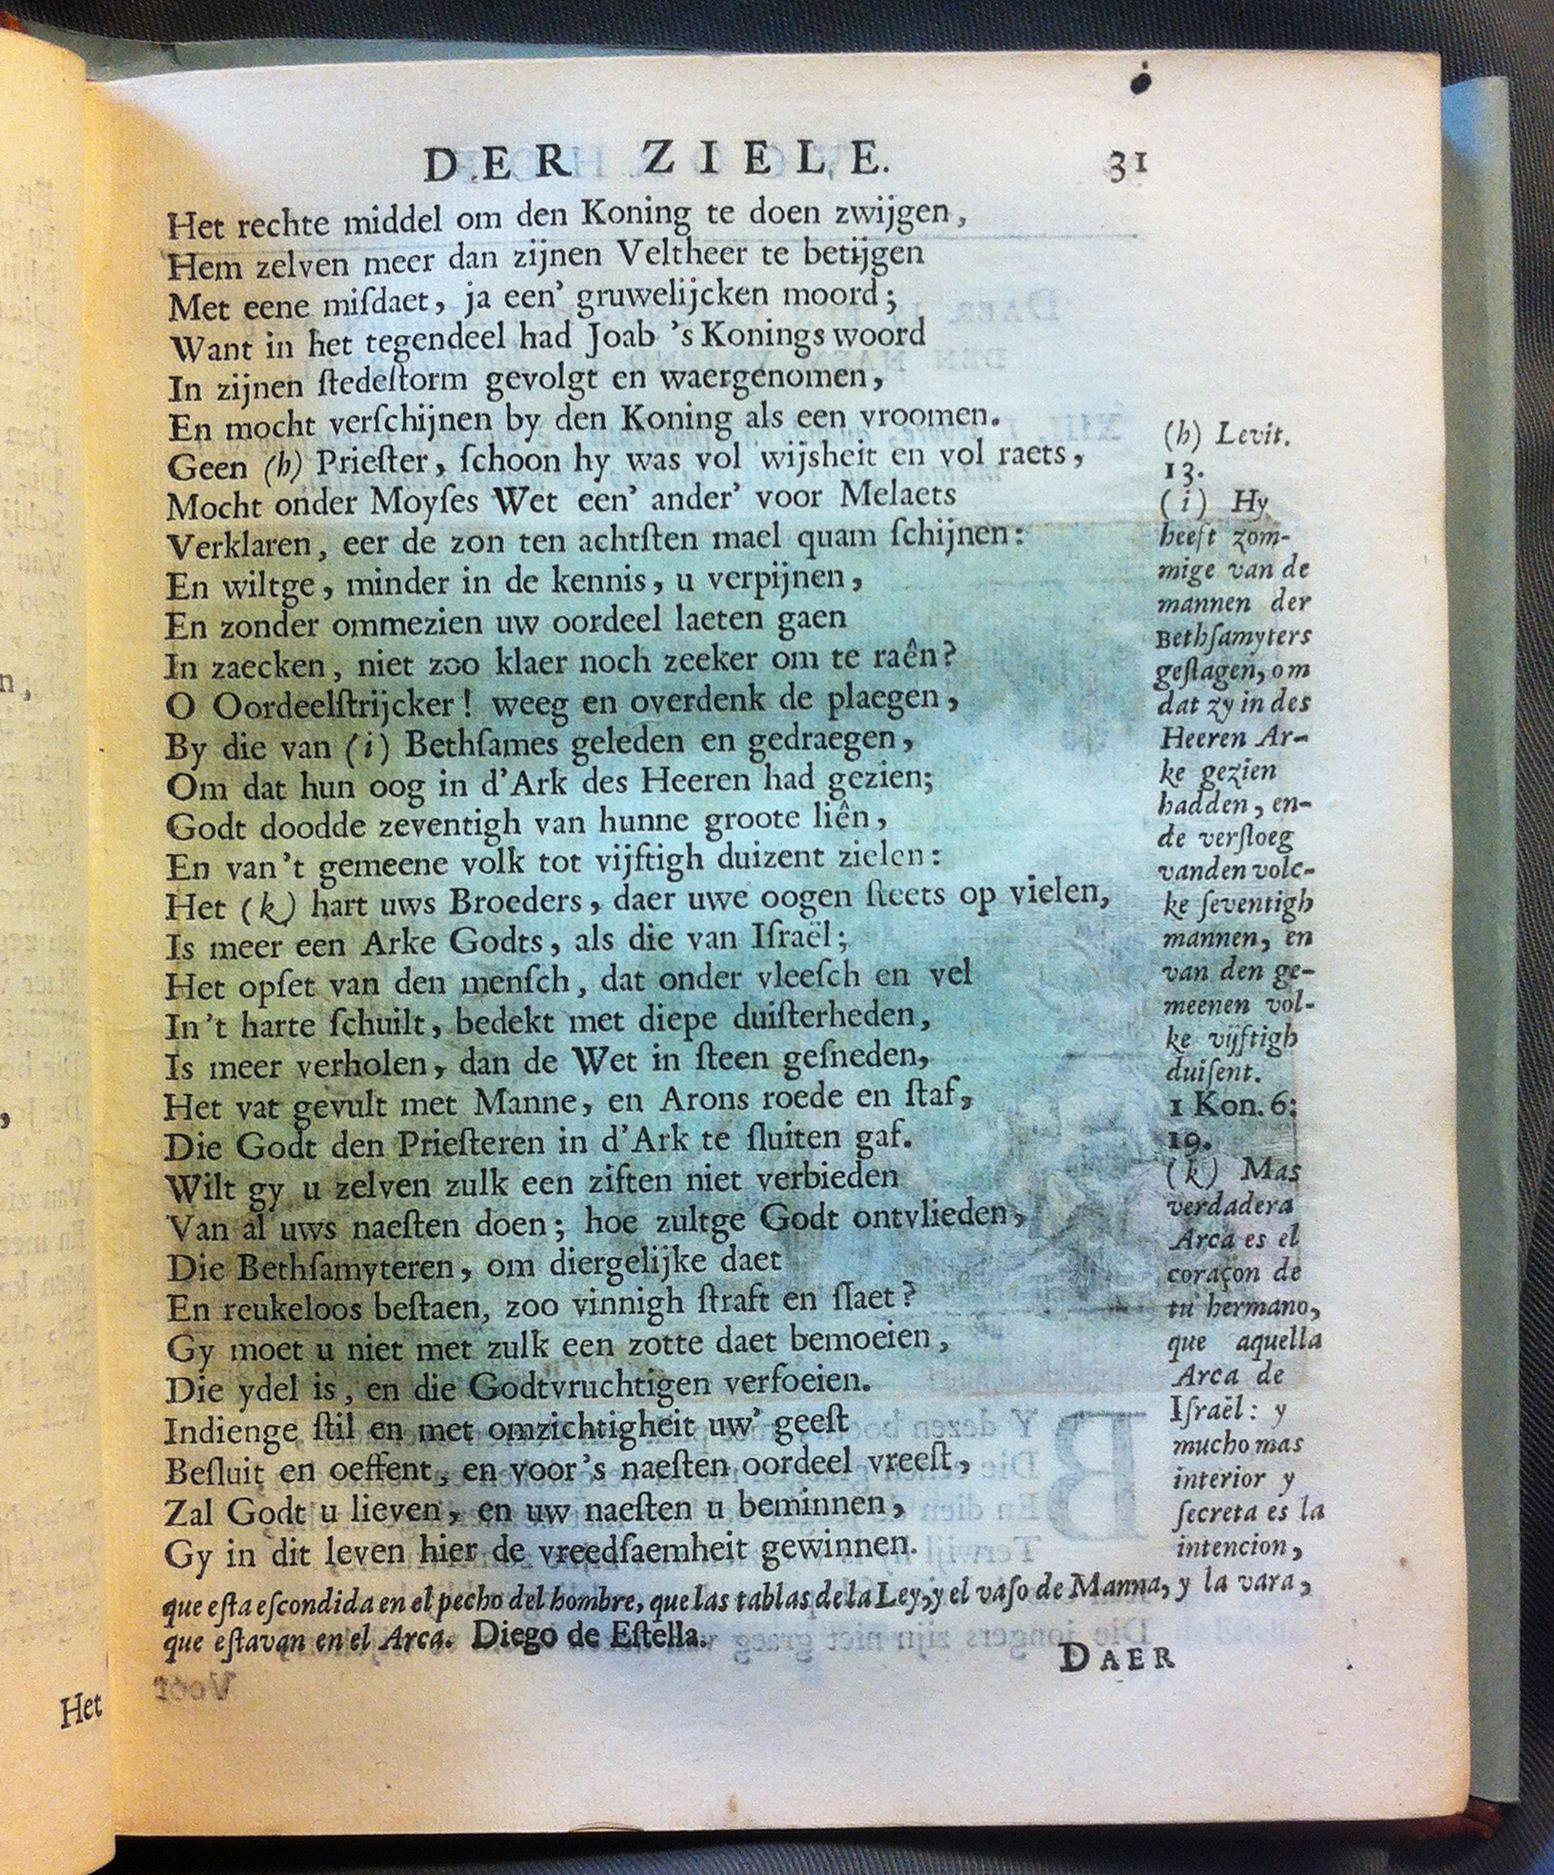 DER ZIELE. 31
Het rechte middel om den Koning te doen zwijgen,
Hem zelven meer dan zijnen Veltheer te betijgen
Met eene miſdaet, ja een’ gruwelijcken moord;
Want in het tegendeel had Joab ’s Konings woord
In zijnen ſtedeſtorm gevolgt en waergenomen,
En mocht verſchijnen by den Koning als een vroomen.
Geen (h) Prieſter, ſchoon hy was vol wijsheit en vol raets,
Mocht onder Moyſes Wet een’ ander’ voor Melaets
Verklaren, eer de zon ten achtſten mael quam ſchijnen:
En wiltge, minder in de kennis, u verpijnen,
En zonder ommezien uw oordeel laeten gaen
In zaecken, niet zoo klaer noch zeeker om te raên?
O Oordeelſtrijcker! weeg en overdenk de plaegen,
By die van (i) Bethſames geleden en gedraegen,
Om dat hun oog in d’Ark des Heeren had gezien;
Godt doodde zeventigh van hunne groote liên,
En van’t gemeene volk tot vijftigh duizent zielen:
Het (k) hart uws Broeders, daer uwe oogen ſteets op vielen,
Is meer een Arke Godts, als die van Iſraël;
Het opſet van den menſch, dat onder vleeſch en vel
In’t harte ſchuilt, bedekt met diepe duiſterheden,
Is meer verholen, dan de Wet in ſteen geſneden,
Het vat gevult met Manne, en Arons roede en ſtaf,
Die Godt den Prieſteren in d’Ark te ſluiten gaf.
Wilt gy u zelven zulk een ziften niet verbieden
Van al uws naeſten doen; hoe zultge Godt ontvlieden,
Die Bethſamyteren, om diergelijke daet
En reukeloos beſtaen, zoo vinnigh ſtraft en ſlaet?
Gy moet u niet met zulk een zotte daet bemoeien,
Die ydel is, en die Godtvruchtigen verfoeien.
Indienge ſtil en met omzichtigheit uw’ geeſt
Beſluit en oeffent, en voor’s naeſten oordeel vreeſt,
Zal Godt u lieven, en uw naeſten u beminnen,
Gy in dit leven hier de vreedſaemheit gewinnen.
(h) Levit.
13.
(i) Hy
heeft zom-
mige van de
mannen der
Bethſamyters
geſlagen, om
dat zy in des
Heeren Ar-
ke gezien
hadden, en-
de verſloeg
vanden volc-
ke ſeventigh
mannen, en
van den ge-
meenen vol-
ke vijftigh
duiſent.
1 Kon. 6:
19.
(k) Mas
verdadera
Arca es el
coraçon de
tu hermano,
que aquella
Arca de
Iſraël: y
mucho mas
interior y
ſecreta es la
intencion,
que eſta eſcondida en el pecho del hombre, que las tablas de la Ley, y el vaſo de Manna, y la vara,
que eſtavan en el Arca. Diego de Eſtella.
DAER
Het